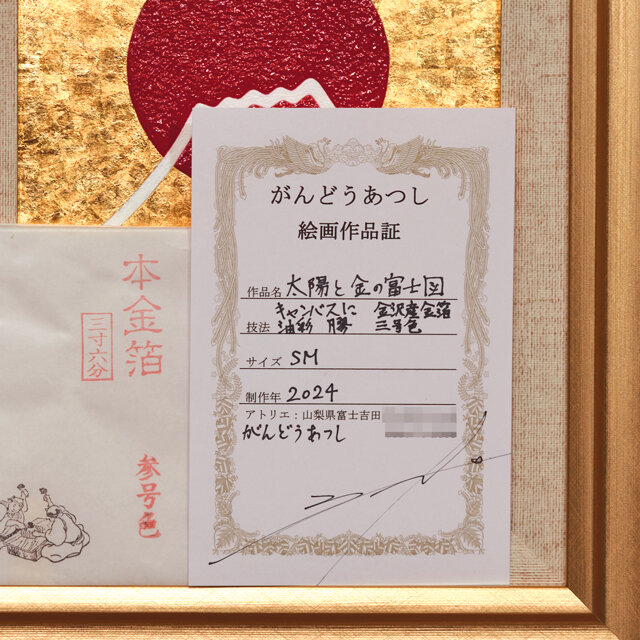 がんどうあつし
絵画作品証
作品名 太陽と金の富士図
技法 キャンバスに 金沢産金箔
油彩 膠 三号色
サイズ SM
制作年 2024
アトリエ：山梨県富士吉田
がんどうあつし
本金箔
三寸六分
参号色